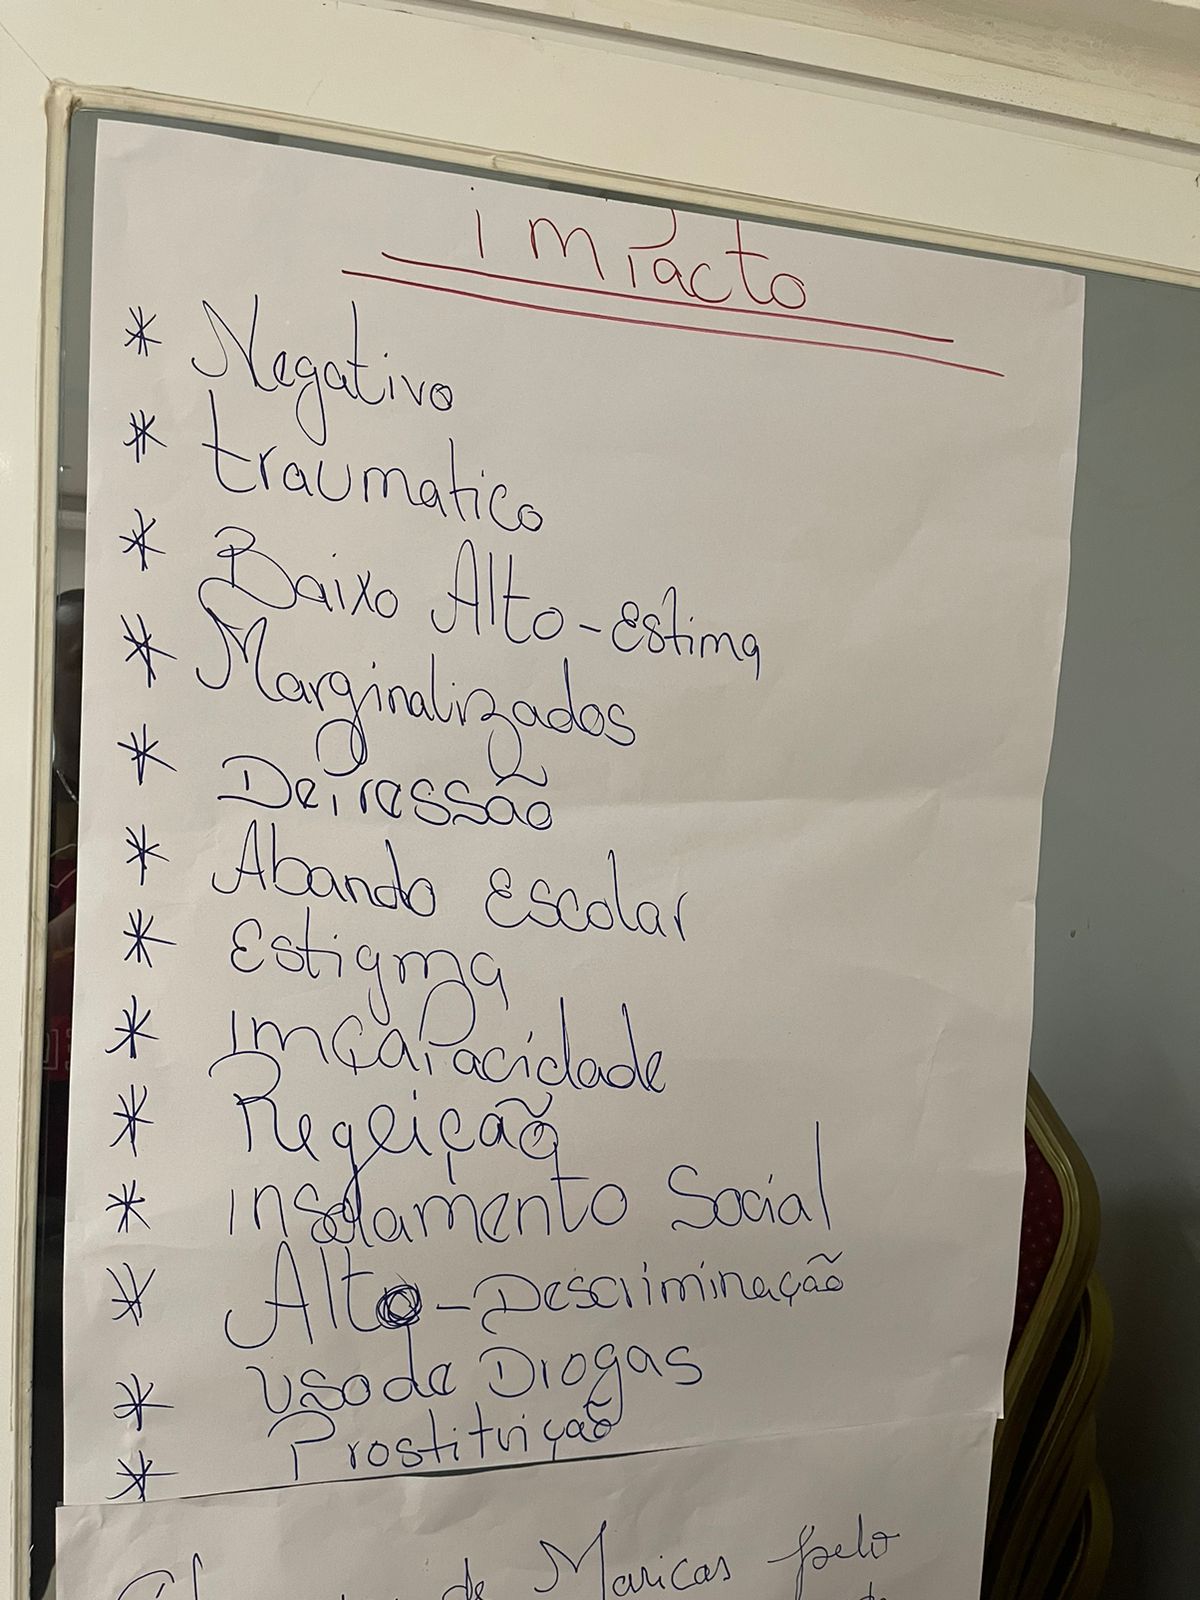 imPacto
* Negativo
* traumatico
* Baixo Alto-Estima
* Marginalizados
* DePressão
* Abando Escolar
* Estigma
* imçaPacidade
* Regeição
* insolamento Social
* Alto-Descriminação
* uso de Drogas
* Prostituição
de Maricas pelo